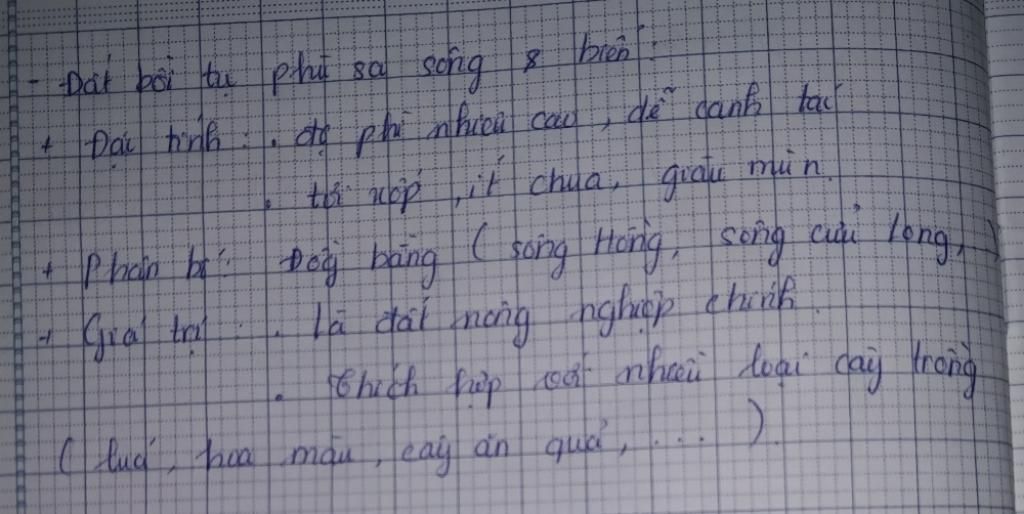 - Đất bồi tụ phù sa sông & biển :
+ Đặc tính : . độ phì nhiêu cao, dễ canh tác
. tơi xốp, ít chua, giàu mùn.
+ Phân bố : Đồng bằng (sông Hồng, sông cửu long,)
+ Giá trị : . Là đất nông nghiệp chính
. Thích hợp với nhiều loại cây trồng
( lúa, hoa màu, cây ăn quả, ... ).